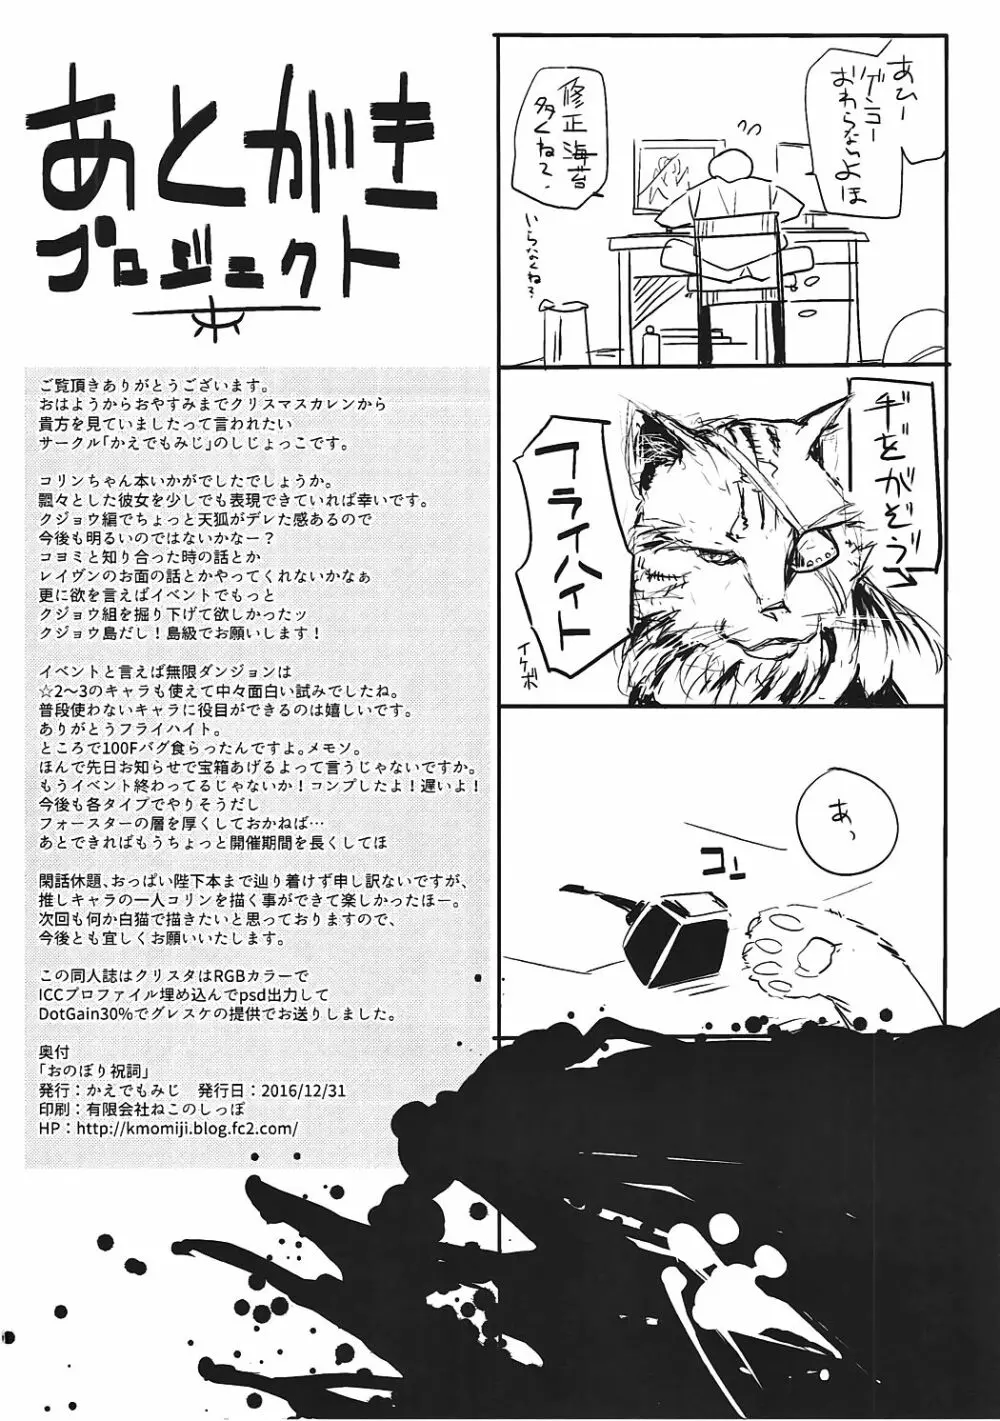 あとがき
プロジェクト
ご覧頂きありがとうございます。
おはようからおやすみまでクリスマスカレンから
貴方を見ていましたって言われたい
サークル「かえでもみじ」のしじょっこです。
コリンちゃん本いかがでしたでしょうか。
飄々とした彼女を少しでも表現できていれば幸いです。
クジョウ編でちょっと天狐がデレた感あるので
今後も明るいのではないかなー？
コヨミと知り合った時の話とか
レイヴンのお面の話とかやってくれないかなぁ
更に欲を言えばイベントでもっと
クジョウ組を掘り下げて欲しかったッ
クジョウ島だし！島級でお願いします！
イベントと言えば無限ダンジョンは
☆2～3のキャラも使えて中々面白い試みでしたね。
普段使わないキャラに役目ができるのは嬉しいです。
ありがとうフライハイト。
ところで100Fバグ食らったんですよ。メモソ。
ほんで先日お知らせで宝箱あげるよって言うじゃないですか。
もうイベント終わってるじゃないか！コンプしたよ！遅いよ！
今後も各タイプでやりそうだし
フォースターの層を厚くしておかねば…
あとできればもうちょっと開催期間を長くしてほ
閑話休題、おっぱい陛下本まで辿り着けず申し訳ないですが、
推しキャラの一人コリンを描く事ができて楽しかったほー。
次回も何か白猫で描きたいと思っておりますので、
今後とも宜しくお願いいたします。
この同人誌はクリスタはRGBカラーで
ICCプロファイル埋め込んでpsd出力して
DotGain30%でグレスケの提供でお送りしました。
奥付
「おのぼり祝詞」
発行：かえでもみじ　発行日：2016/12/31
印刷：有限会社ねこのしっぽ
HP：http://kmomiji.blog.fc2.com/
あひー
ゲンコー
おわらないよほ
修正海苔
多くね？
いらなくね？
ヂがをぞう
フライハイト
イケボ
あっ
コノ